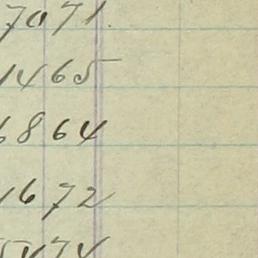 7071.
1465
6864
1672
5474